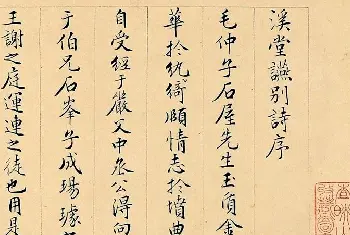 溪堂讌別詩序
毛仲子石屋先生玉質金
華於紈綺頗情志於墳典
自受經于嚴父中丞公得向
于伯兄石峯子成瑒璩
王謝之庭運連之徒也用是